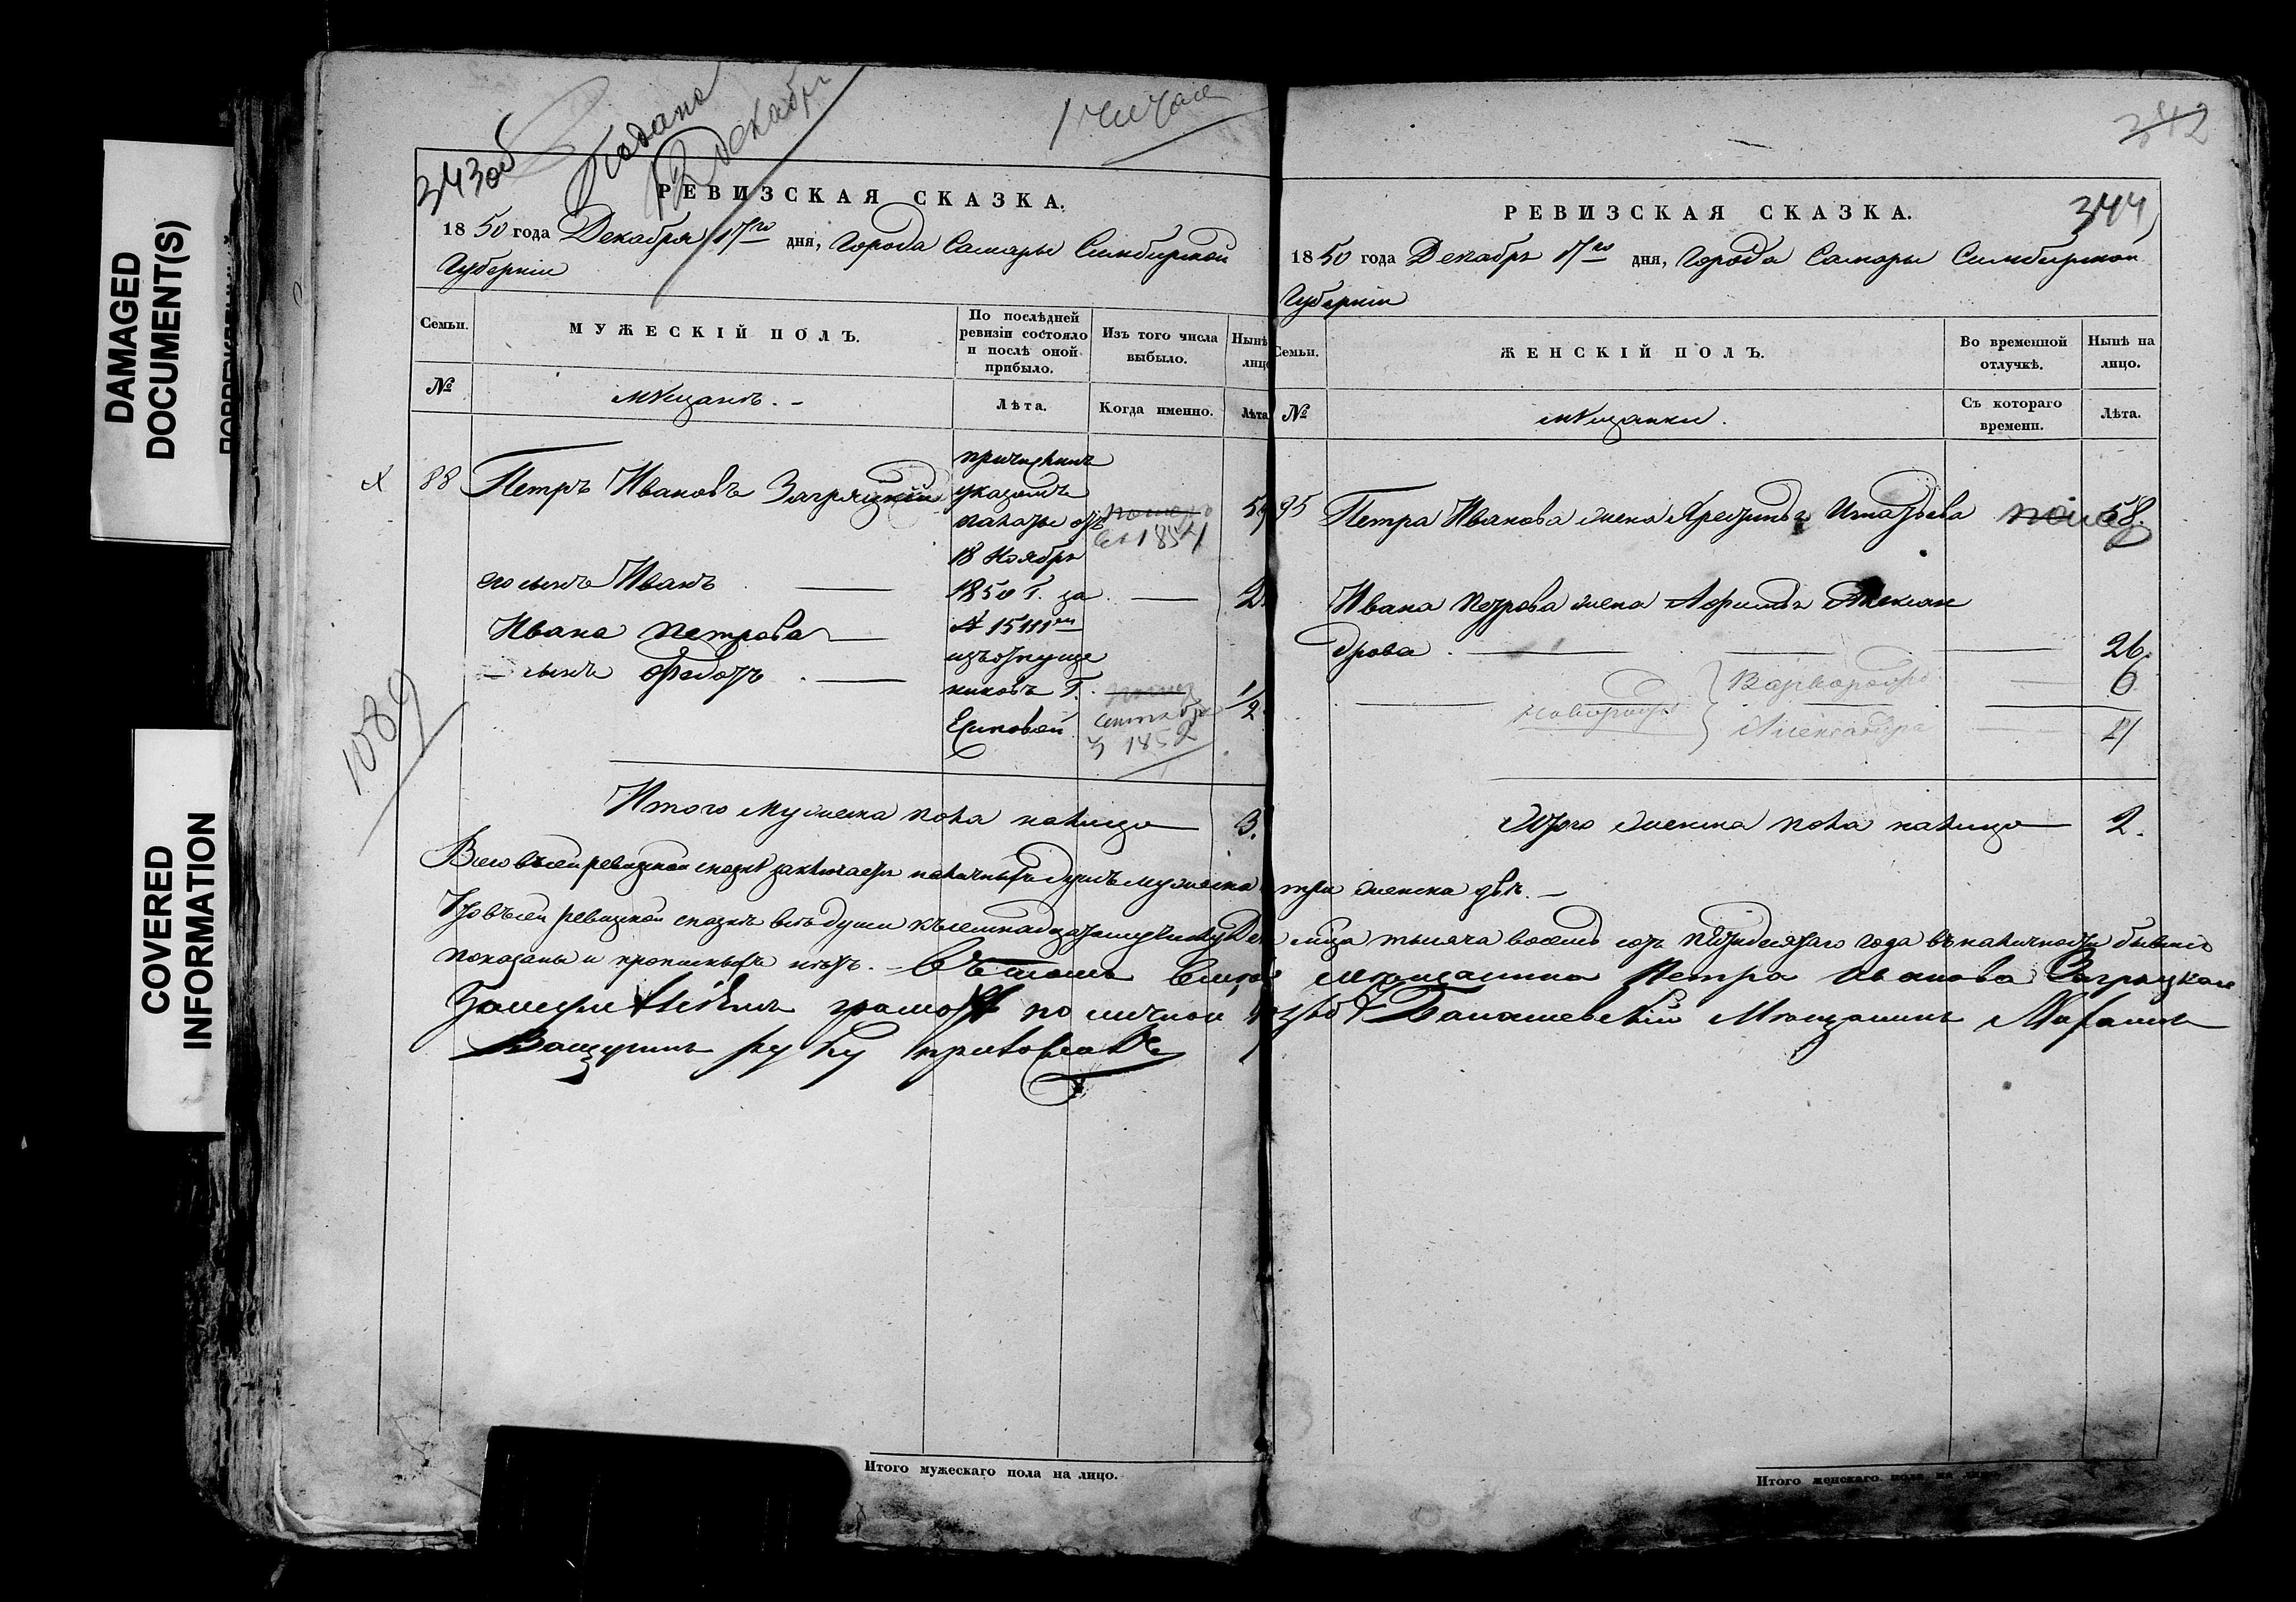 DAMAGED
DOCUMENT(S)
COVERED
INFORMATION
343об
Подана
17 декабря
342
РЕВИЗСКАЯ СКАЗКА.
1850 года Декабря 17го дня, Города Самары Симбирской
Губернии
Семьи.
МУЖЕСКІЙ ПОЛЪ.
По послѣдней
ревизіи состояло
и послѣ оной
прибыло.
Изъ того числа
выбыло.
Нынѣ
лицо
№
мѣщанъ. -
Лѣта.
Когда именно.
Лѣта
88 Петръ Ивановъ Загряцкій
причисленъ
указомъ
палаты отъ
18 Ноября
1850 г. за
№ 15111м
изъ отпуще
никовъ Г.
1854
его сынъ Иванъ
Ивана Петрова
сынъ Федотъ
1/2
1852
1089
Итого мужеска пола налицо 3.
344
РЕВИЗСКАЯ СКАЗКА.
1850 года Декабря 17го дня, Города Самары Симбирской
Губерніи
Семьи.
ЖЕНСКІЙ ПОЛЪ.
Во временной
отлучкѣ.
Нынѣ на
лицо.
№
мѣщанки.
Съ котораго
времени.
Лѣта.
95 Петра Иванова жена Христинья Игнатьева 58.
Ивана Петрова жена Афимья Алексан
дрова 26.
Варвара 6
Александра 4
Итого женска пола налицо 2.
Всего въ сей ревизской сказкѣ заключается наличныхъ душъ мужеска три женска двѣ. -
Что въ сей ревизской сказкѣ всѣ души къ семнадцатому числу Дек мца тысяча восемь сотъ пятидесятаго года въ наличности бывшіе
показаны и прописныхъ нѣтъ. - Въ томъ вместо мещанина Петра Иванова Загряцкаго
грамотѣ по личной прозбѣ Мещанинъ
руку приложилъ
Итого мужескаго пола на лицо.
Итого женскаго пола на лицо.